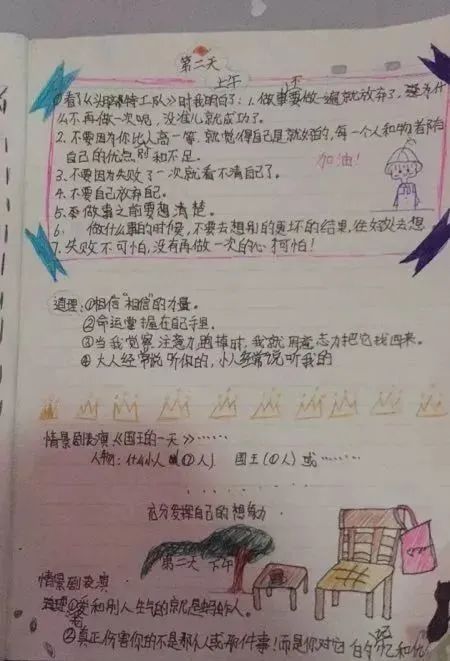 第二天
上午
①看了《头脑特工队》时我明白了：1. 做事要做一遍就放弃了，为什
么不再做一次呢，没准儿就成功了。
2. 不要因为你比人高一等，就觉得自己是最好的，每一个人和物者陏有
自己的优点和不足。
3. 不要因为失败了一次就看不清自己了。
加油！
4. 不要自己放弃自己。
5. 做事之前要想清楚。
6. 做什么事的时候，不要去想别的更坏的结果，往好处去想
7. 失败不可怕，没有再做一次的心可怕！
道理：①相信“相信”的力量。
②命运掌握在自己手里。
③当我觉察注意力跑掉时，我就用意志力把它找回来。
④大人经常说听你的，小人经常说听我的
情景剧表演《国王的一天》……
人物：什么小人（①人）  国王（①人）或……
充分发挥自己的想象力
第二天 下午
情景剧表演
道理①爱和别人生气的就是的人。
②真正伤害你的不是那个人或那件事！而是你对它的记忆和